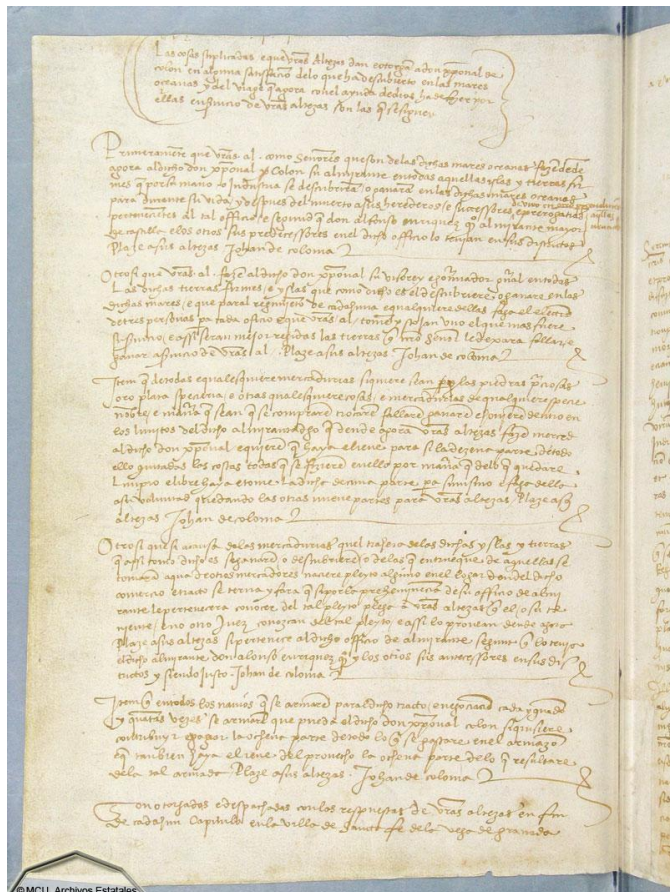 Las cosas suplicadas e que vras Altezas dan e otorgan a don xpoual de
colon en alguna satisfacion delo que ha descubierto en las mares
oceanas y del viage que agora con el ayuda de dios ha de fazer por
ellas en seruicio de vras altezas son las que se siguen
Primeramente que vras al. como Senores que son delas dichas mares oceanas fazen dende
agora al dicho don xpoual Colon su almirante en todas aquellas yslas y tierras fir
mes que por su mano o Industria se descubriran o ganaran en las dichas mares oceanas
para durante su vida, y despues del muerto a sus herederos, e successores de vno en otro perpetualmente
pertenecientes al tal officio, e segund que don alfonso enrriquez qo. al mirante mayor
de castilla e los otros sus predecessores en el dicho officio lo tenian en sus districtos
Plaze a sus altezas Johan de coloma
Otrosi que vras al. fazen al dicho don xpoual su visorey e gouernador general en todas
Las dichas tierras firmes, e yslas que como dicho es el descubriere, o ganare en las
dichas mares, e que paral regimiento de cadahuna e qualquiere dellas faga el eleccion
de tres personas para cada oficio e que vras al. tomen y scojan vno el que mas fuere
su seruicio, e assi seran mejor regidas las tierras que nro senor le dexara fallar, e
ganar a seruicio de vras al. Plaze a sus altezas Johan de coloma
Item que de todas e qualesquiere mercadurias siquiere sean perlas piedras preciosas
oro plata speciaria, e otras qualesquiere cosas, e mercadurias de qualquiere specie
nombre, e manera que sean que se compraren trocaren fallaren ganaren e houieren dentro en
los limites del dicho almirantadgo que dende agora vras altezas fazen merced
al dicho don xpoual e quieren que haya e lieue para si la dezena parte de todo
ello quitadas las costas todas que se fizieren en ello por manera que delo que quedare
Limpio e libre haya e tome La dicha decima parte para si mismo e faga dello
a su voluntad quedando las otras nueue partes para vras altezas. Plaze a sus
altezas Johan de coloma
Otrosi que si a causa delas mercadurias quel trahera delas dichas yslas y tierras
que assi como dicho es se ganaren, o descubrieren, o delas que en trueque de aquellas se
tomaran aqua de otros mercadores naciere pleyto alguno en el logar don del dicho
comercio e tracto se terna y fara, que si por la preheminencia de su officio de almi
rante le pertenecera conocer del tal pleyto plega a vras altezas que el, o su te
niente, e no otro Juez conozcan del tal pleyto, e assi lo prouean dende agora
Plaze a sus altezas si pertenece al dicho officio de almirante segunt que lo tenia
el dicho almirante don alonso enrriquez qo. y los otros sus antecessores en sus dis
trictos y siendo justo. Johan de coloma
Item que en todos los nauios que se armaren paral dicho tracto, e negociacion cada y quando
y quantas vezes se armaren que pueda el dicho don xpoual colon si quisiere
contribuyr e pagar la ochena parte de todo lo que se gastare en el armazon
e que tanbien haya e lieue del prouecho la ochena parte delo que resultare
dela tal armada. Plaze a sus altezas. Johan de coloma
Son otorgados e despachados con las respuestas de vras altezas en fin
de cadahun Capitulo en la villa de Sancta fe dela vega de granada
©MCU. Archivos Estatales